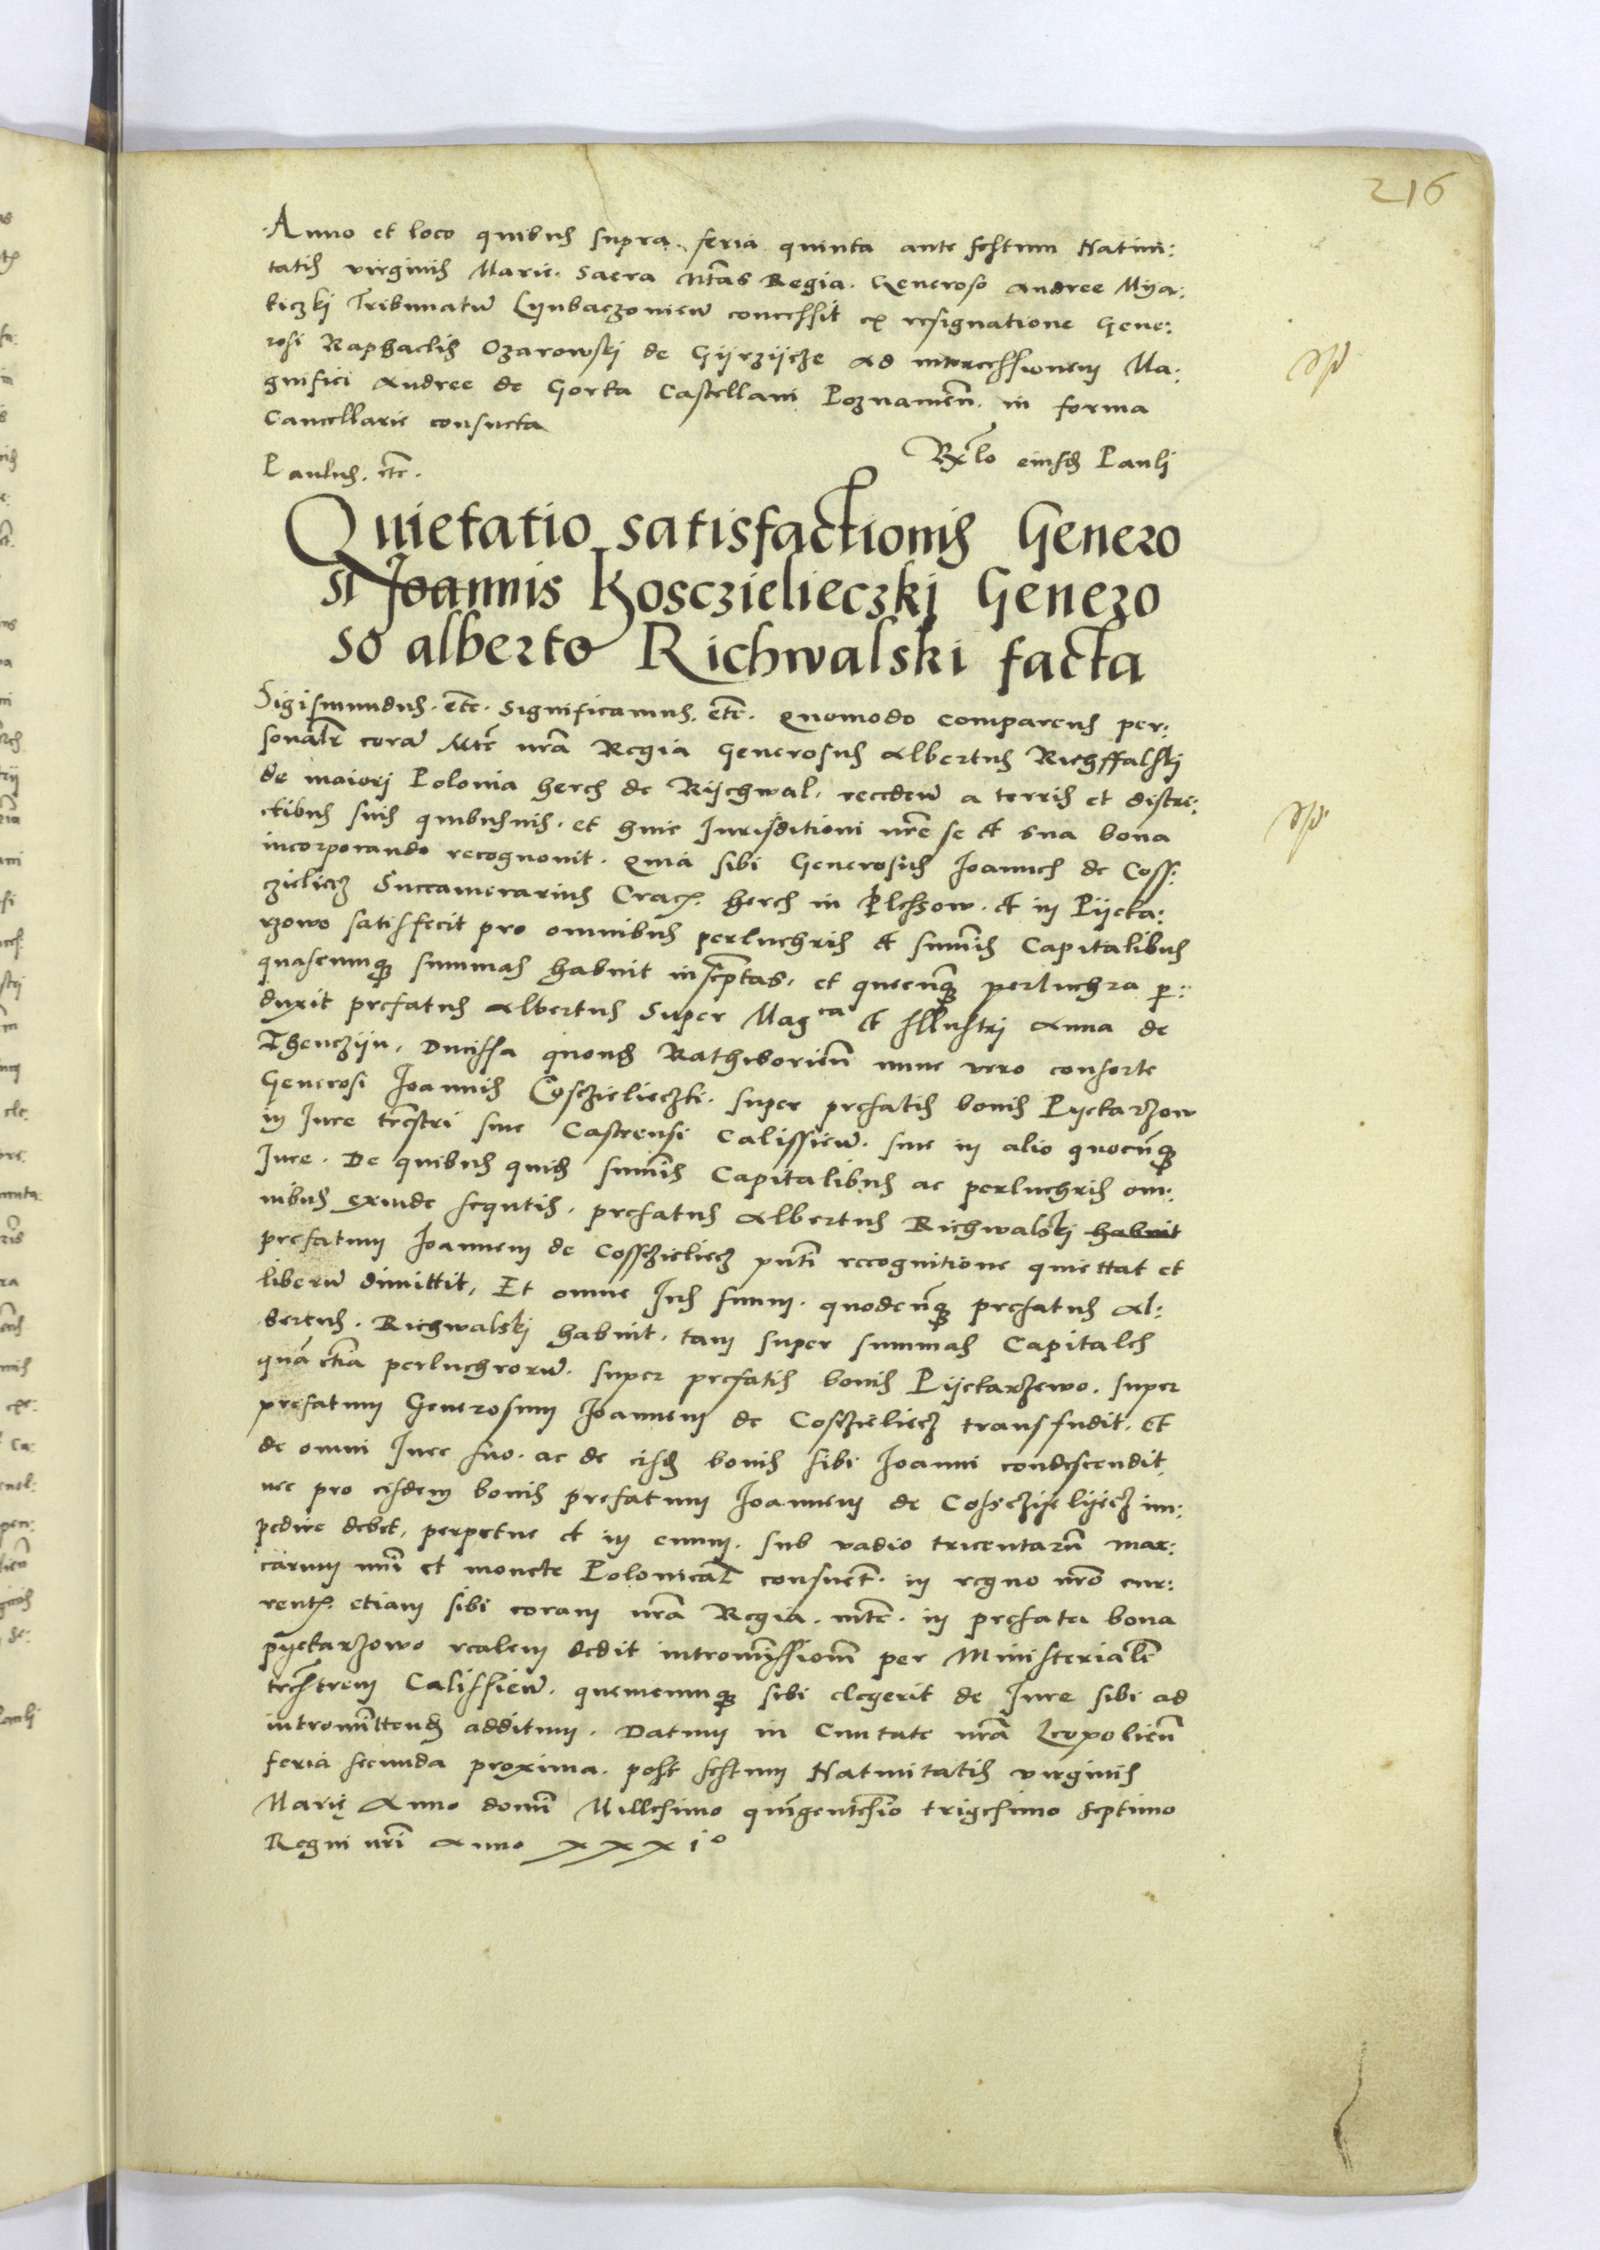 216
Anno et loco quibus supra. feria quinta ante festum Natiui:
tatis virginis Marie. Sacra Mtas Regia. Generoso Andree Mya:
kiczki Tribunatu Lynbaczoniem concessit ex resignatione Gene:
rosi Raphaelis Ozarowskj de Gyrzijcze ad intercessionem Ma:
gnifici Andree de Gorka Castellani Poznanien. in forma
Cancellarie consueta
Paulus. etc.
Rclo eiusdem Paulj
Quietatio satisfactionis Genero
si Joannis Kosczielieczkj Genero
so alberto Richwalski facta
Sigismundus. etc. Significamus. etc. Quomodo comparens per:
sonalr coram Mte nra Regia Generosus Albertus Richffalskj
de maiorj Polonia heres de Rijchwal. receden a terris et distri:
ctibus suis quibusuis. et huic Jurisditioni nre se et sua bona
incorporando recognouit. Quia sibi Generosus Joannes de Coss:
zieliecz Succamerarius Crac. heres in Plessow. et in Pijeka:
rzowo satisfecit pro omnibus perluchris et summis Capitalibus
quascumque summas habuit inscriptas. et quecunque perluchra p:
duxit prefatus Albertus Super Magca et Jllustrj Anna de
Thenczijn. Ducissa quondam Rathiborien nunc vero consorte
Generosi Joannis Cosczielieczki. super prefatis bonis Pyekarzow
in Jure trestri siue Castrensi Calissien. siue in alio quocunque
Jure. De quibus quidem summis Capitalibus ac perluchris om:
nibus exinde sequtis. prefatus Albertus Richwalskj habuit
prefatum Joannem de Cosszieliecz pnti recognitione quiettat et
liberum dimittit. Et omne Jus suum. quodcunque prefatus Al:
bertus. Richwalskj habuit. tam super summas Capitales
quam etia perluchrorum. super prefatis bonis Pijekarzewo. super
prefatum Generosum Joannem de Coszieliecz transfudit. Et
de omni Jure suo. ac de eisdem bonis sibi Joanni condescendit
nec pro eisdem bonis prefatum Joannem de Cossczielijecz im:
pedire debet. perpetue et in euum. sub vadio tricentarum mar:
carum nri et monete Polonicalr consuet. in regno nro cur:
rent. etiam sibi coram nra Regia. mte. in prefata bona
pyekarzowo realem dedit intromissionem per Ministerialem
trestrem Calissien. quemcumque sibi elegerit de Jure sibi ad
intromittendum additum. Datum in Ciuitate nra Leopolien
feria secunda proxima. post festum Natiuitatis virginis
Marię Anno domini Millesimo quingentesimo trigesimo Septimo
Regni nri Anno xxxio